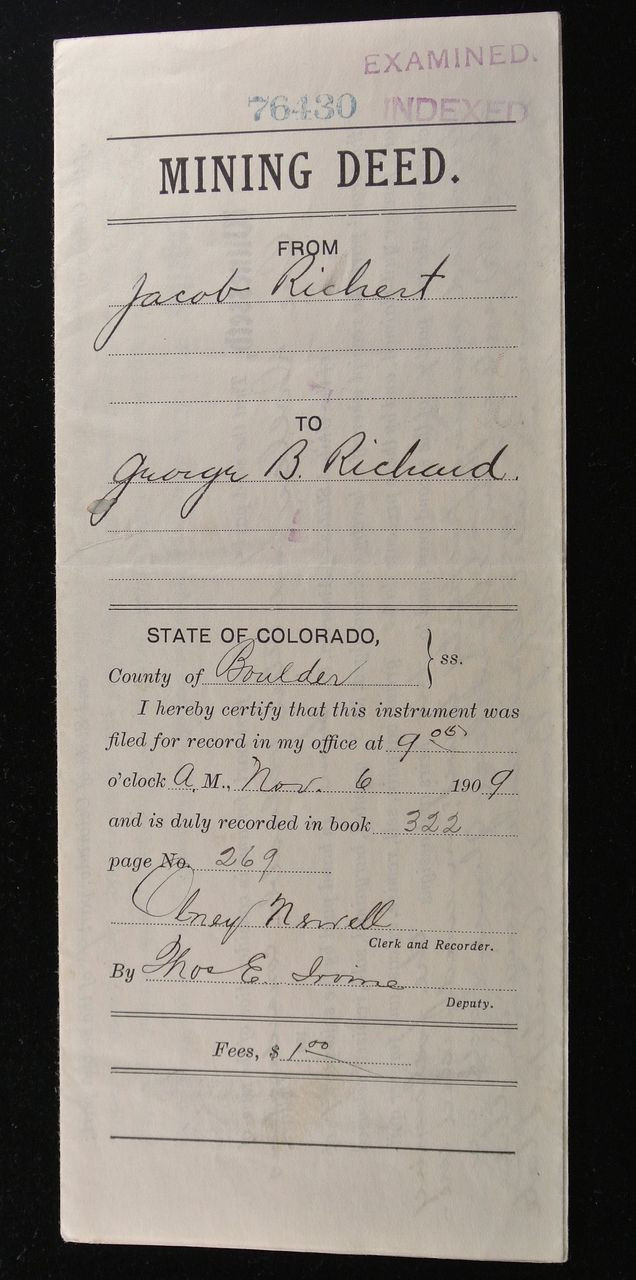 EXAMINED.
76430 INDEXED
MINING DEED.
FROM
Jacob Richert
TO
George B. Richard.
STATE OF COLORADO,
County of Boulder } ss.
I hereby certify that this instrument was
filed for record in my office at 9 05
o'clock A. M., Nov. 6 1909
and is duly recorded in book 322
page No. 269
Olney Newell
Clerk and Recorder.
By Thos E. Irvine
Deputy.
Fees, $ 1 00